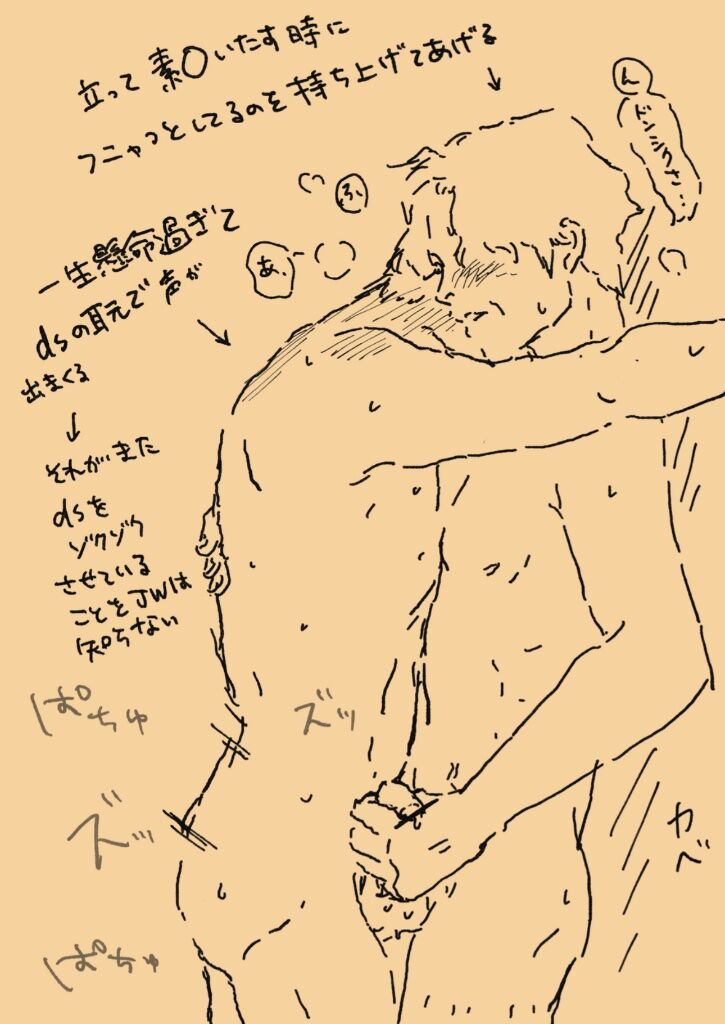 立って素○いたす時に
フニャっとしてるのを持ち上げてあげる
ん
ドンシクさ…
ふ、
あ、
一生懸命過ぎて
dsの耳元で声が
出まくる
それがまた
dsを
ゾクゾク
させている
ことをJWは
知らない
ぱちゅ
ズッ
ズッ
カベ
ぱちゅ